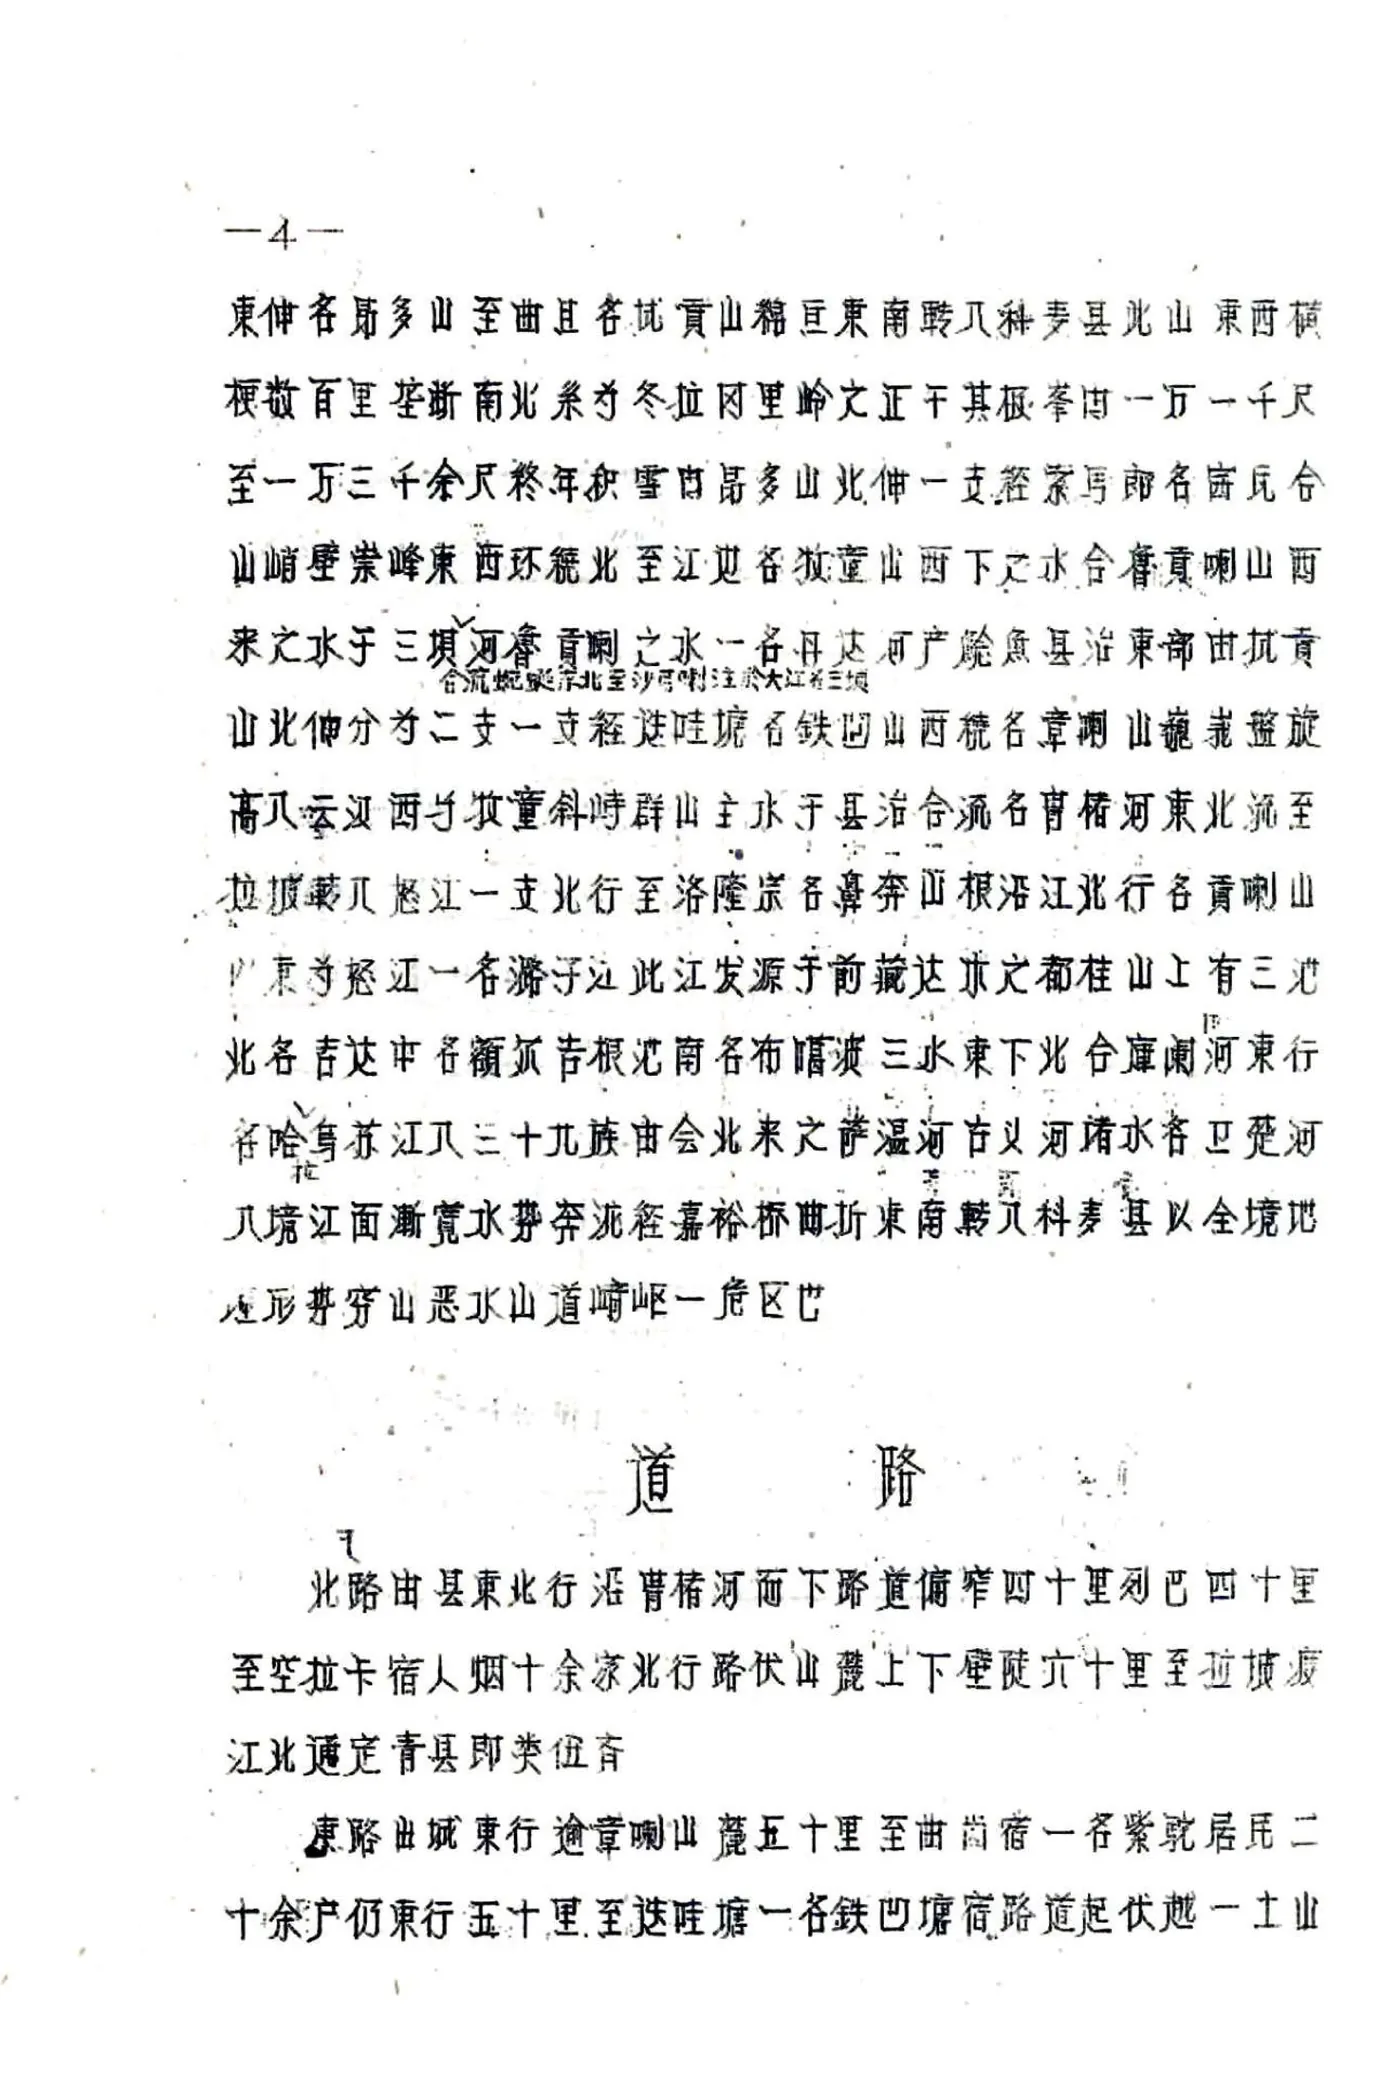 —4—
東伸名昂多山至曲且名扰貢山綿亘東南転入科麦县北山東西横
梗数百里垄断南北系为冬拉冈里岭之正干其极峯由一万一千尺
至一万三千余尺終年积雪由昂多山北伸一支経索馬郎名宻瓦合
山峭壁崇峰東西环繞北至江边名牧童山西下之水合魯貢喇山西
来之水于三垻河魯貢喇之水一名冄达河产鯰魚县治東部由扰貢
合流蜿蜒东北至沙弓喇注於大江名三垻
山北伸分为二支一支経迭哇塘名鉄凹山西繞名章喇山巍峩盤旋
高入云汉西与牧童斜峙群山主水于县治合流名曹楮河東北流至
拉坡転入怒江一支北行至洛隆宗名鼻奔山根沿江北行名貢喇山
東为怒江一名潞子江此江发源于前藏达木之都桂山上有三池
北名吉达中名額尔吉根池南名布喀池三水東下北合庫阑河東行
名哈烏苏江入三十九族由会北来之萨温河古义河堵水名卫楚河
拉
入境江面漸寬水势奔流経嘉裕桥曲折東南転入科麦县以全境地
理形势穷山恶水山道崎岖一危区也
道 路
北路由县東北行沿曹楮河而下路道偏窄四十里列巴四十里
至空拉卡宿人烟十余家北行路伏山麓上下壁陡六十里至拉坡渡
江北通定青县即类伍齐
東路出城東行逾章喇山麓五十里至曲尚宿一名紫駝居民二
十余户仍東行五十里至迭哇塘一名鉄凹塘宿路道起伏越一土山